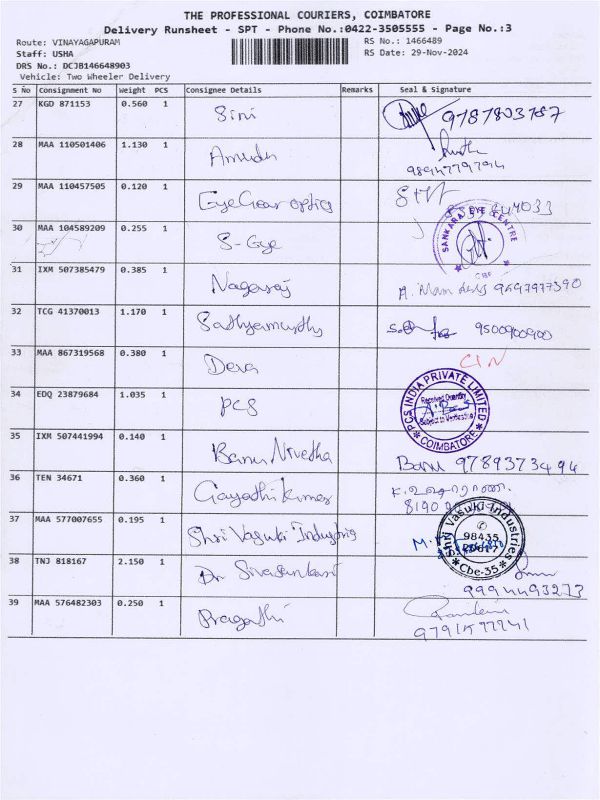 THE PROFESSIONAL COURIERS, COIMBATORE
Delivery Runsheet - SPT - Phone No.:0422-3505555 - Page No.:3
Route: VINAYAGAPURAM RS No.: 1466489
Staff: USHA RS Date: 29-Nov-2024
DRS No.: DCJB146648903
Vehicle: Two Wheeler Delivery
S No Consignment No Weight PCS Consignee Details Remarks Seal & Signature
27 KGD 871153 0.560 1 Sini 9787803787
28 MAA 110501406 1.130 1 Amudh
29 MAA 110457505 0.120 1 Eye Gear optics
30 MAA 104589209 0.255 1 S-Eye
SANKARA EYE CENTRE
CBE
31 IXM 507385479 0.385 1 Nagaraj
32 TCG 41370013 1.170 1 Sathyamurthy 9500900900
33 MAA 867319568 0.380 1 Deva
34 EDQ 23879684 1.035 1 PCS
PCS INDIA PRIVATE LIMITED
Received Quantity
Subject to Verification
COIMBATORE
35 IXM 507441994 0.140 1 Banu Nivetha Banu 9789373494
36 TEN 34671 0.360 1 Gayathi kumar
37 MAA 577007655 0.195 1 Shri Vasuki Industris
Shri Vasuki Industries
98435
Cbe-35
38 TNJ 818167 2.150 1 Dr Sivasankari 9994493273
39 MAA 576482303 0.250 1 Pragathi